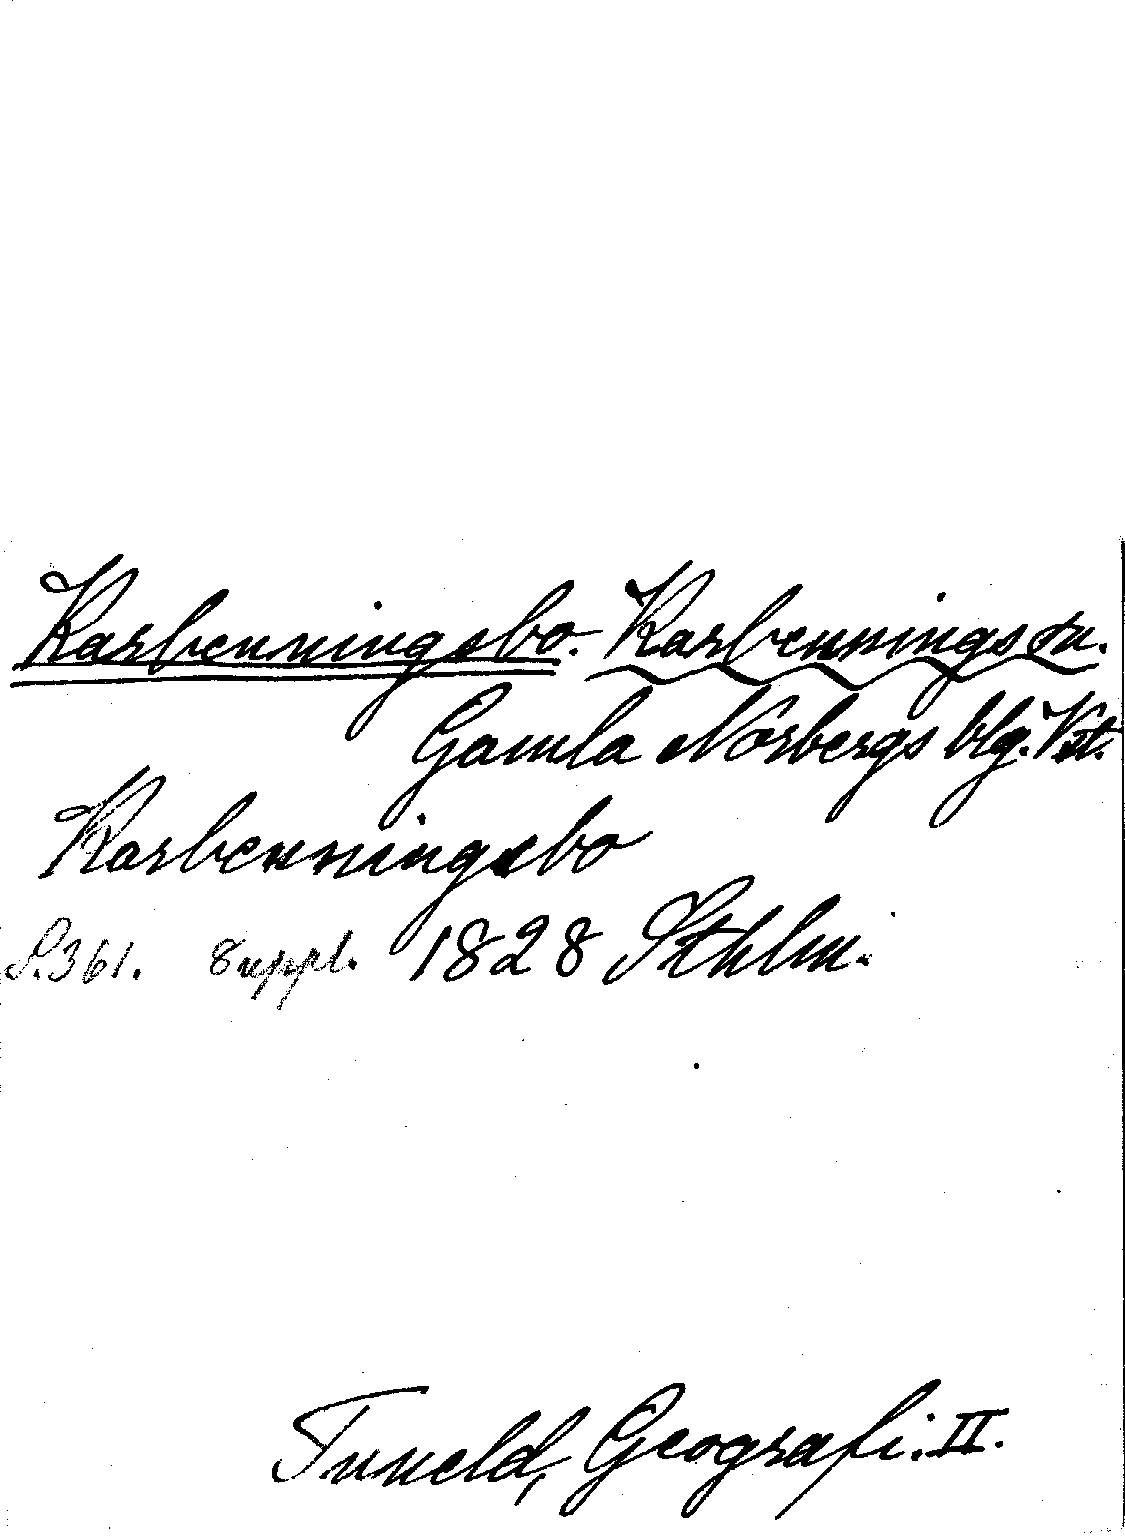 Karbenningsbo. Karbennings sn.
Gamla Norbergs blg. Vstm.
Karbenningsbo
S. 361. 8 uppl. 1828 Sthlm.
Tuneld, Geografi. II.